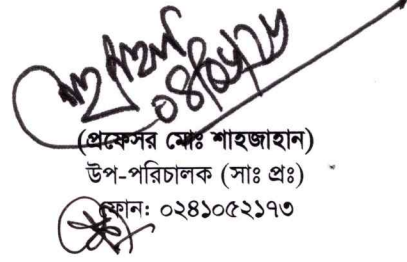 (প্রফেসর মোঃ শাহজাহান)
উপ-পরিচালক (সাঃ প্রঃ)
ফোন: ০২৪১০৫২১৭৩